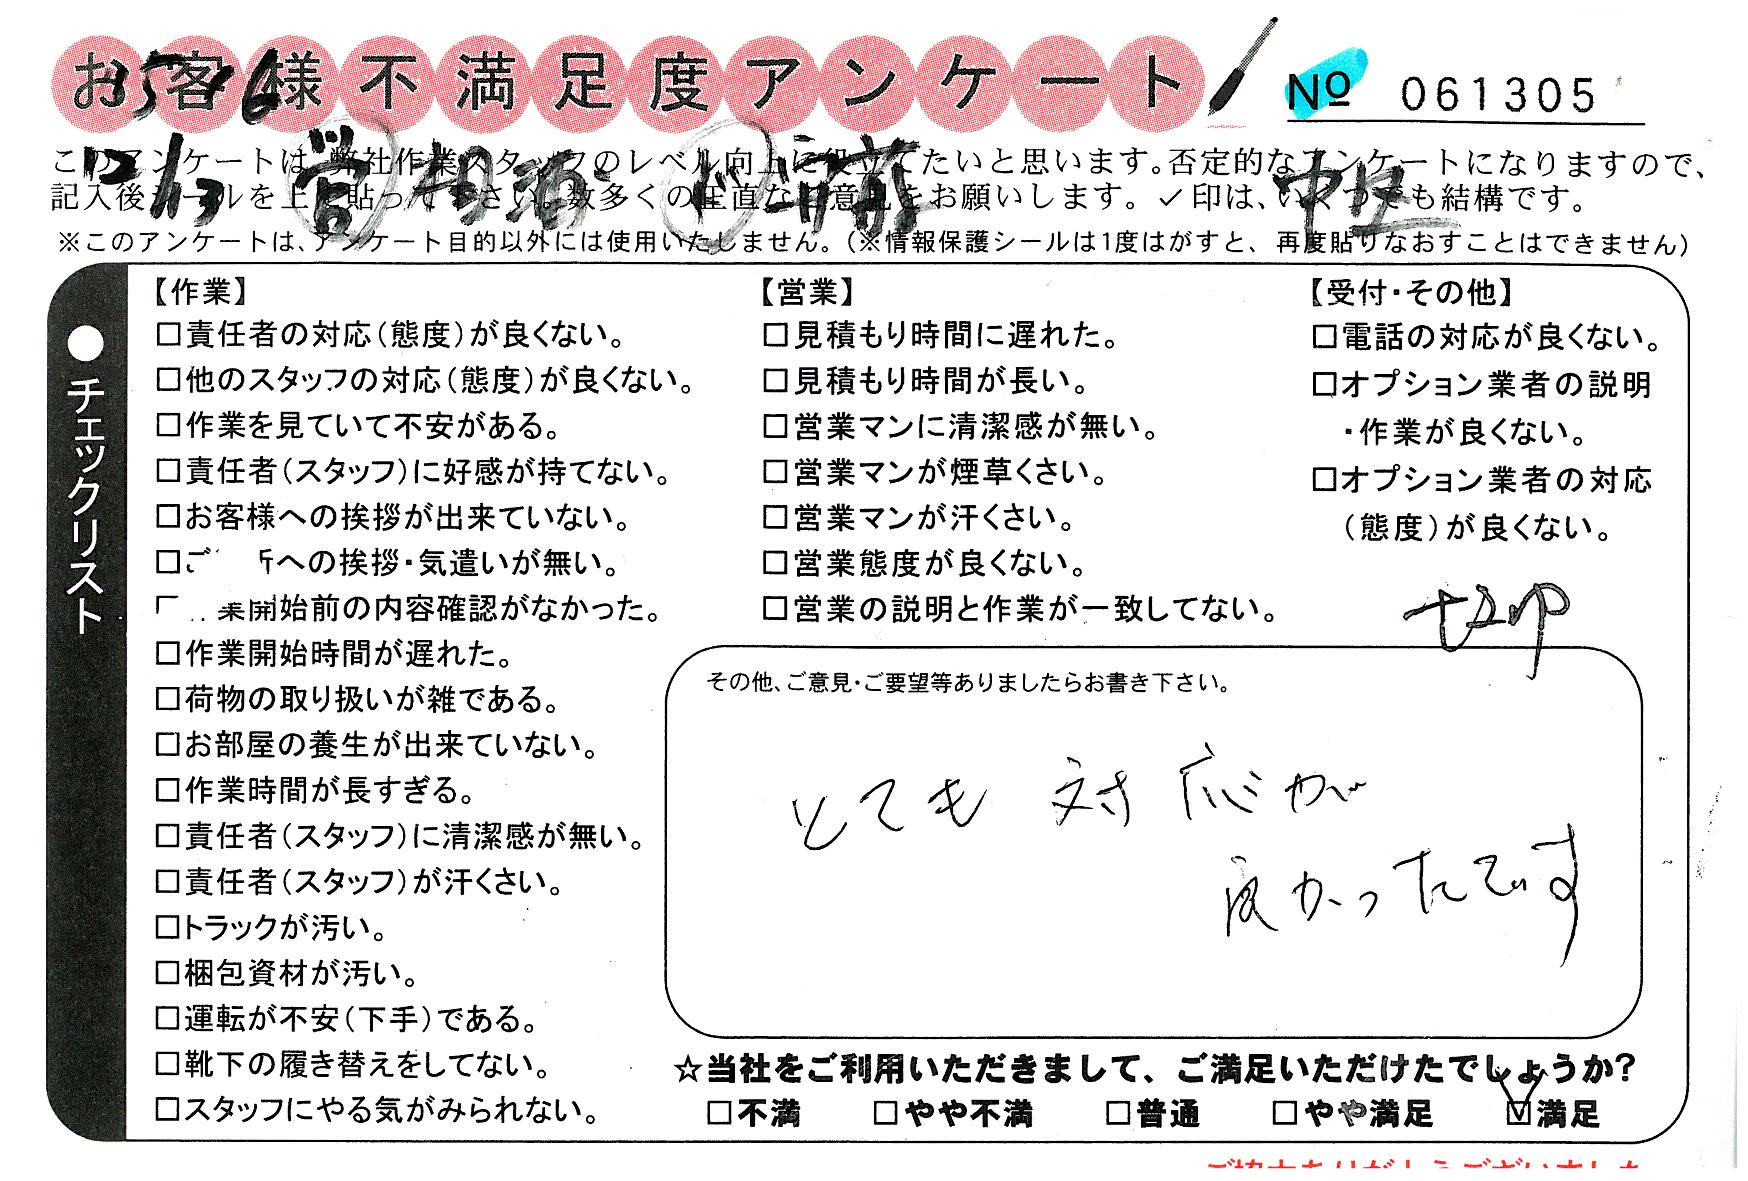 お客様不満足度アンケート
№ 061305
このアンケートは、弊社作業スタッフのレベル向上に役立てたいと思います。否定的なアンケートになりますので、
記入後シールを上に貼って下さい。数多くの正直なご意見をお願いします。✓印は、いくつでも結構です。
※このアンケートは、アンケート目的以外には使用いたしません。(※情報保護シールは1度はがすと、再度貼りなおすことはできません)
●チェックリスト
【作業】
□責任者の対応(態度)が良くない。
□他のスタッフの対応(態度)が良くない。
□作業を見ていて不安がある。
□責任者(スタッフ)に好感が持てない。
□お客様への挨拶が出来ていない。
□ご 所への挨拶・気遣いが無い。
□ 業開始前の内容確認がなかった。
□作業開始時間が遅れた。
□荷物の取り扱いが雑である。
□お部屋の養生が出来ていない。
□作業時間が長すぎる。
□責任者(スタッフ)に清潔感が無い。
□責任者(スタッフ)が汗くさい。
□トラックが汚い。
□梱包資材が汚い。
□運転が不安(下手)である。
□靴下の履き替えをしてない。
□スタッフにやる気がみられない。
【営業】
□見積もり時間に遅れた。
□見積もり時間が長い。
□営業マンに清潔感が無い。
□営業マンが煙草くさい。
□営業マンが汗くさい。
□営業態度が良くない。
□営業の説明と作業が一致してない。
【受付・その他】
□電話の対応が良くない。
□オプション業者の説明
・作業が良くない。
□オプション業者の対応
(態度)が良くない。
その他、ご意見・ご要望等ありましたらお書き下さい。
とても 対応が
良かったです
☆当社をご利用いただきまして、ご満足いただけたでしょうか?
□不満 □やや不満 □普通 □やや満足 ☑満足
ご協力ありがとうございました